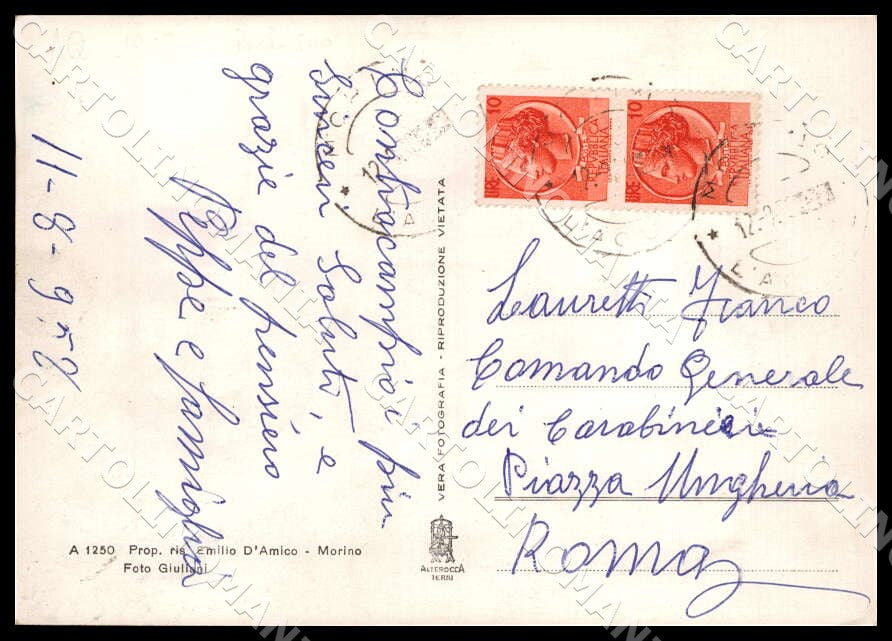 Contraccambio i più
sinceri saluti, e
grazie del pensiero
Peppe e famiglia
11-8-952
VERA FOTOGRAFIA - RIPRODUZIONE VIETATA
10
LIRE
REPVBBLICA
ITALIANA
10
LIRE
REPVBBLICA
ITALIANA
Lauretti Franco
Comando Generale
dei Carabinieri
Piazza Ungheria
Roma
A 1250 Prop. ris. Emilio D'Amico - Morino
Foto Giuliani
ALTEROCCA
TERNI
CARTOLINA